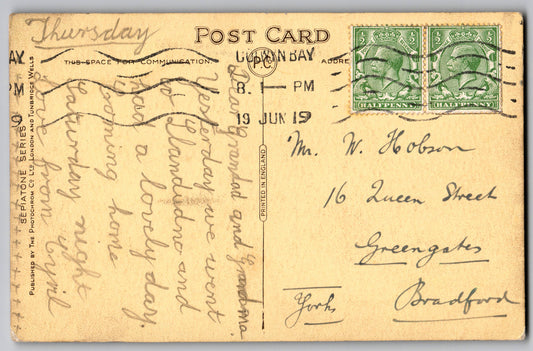 Thursday
POST CARD
THIS SPACE FOR COMMUNICATION.
P.C.
Dear Grandad and Grandma.
Yesterday we went
to Llandudno and
had a lovely day.
coming home
Saturday night
love from Cyril
++++++++++
SEPIATONE SERIES
PUBLISHED BY THE PHOTOCHROM CO LTD LONDON AND TUNBRIDGE WELLS
PRINTED IN ENGLAND
COLWYN BAY
8. 1 – PM
19 JUN 19
AY
PM
9
½ ½
HALFPENNY
½ ½
HALFPENNY
Mr. W. Hobson
16 Queen Street
Greengates
Bradford
Yorks